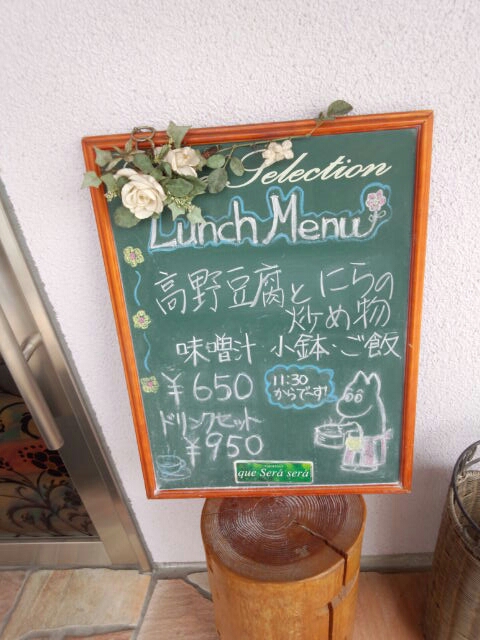 Selection
Lunch Menu
高野豆腐と にらの
炒め物
味噌汁・小鉢・ご飯
¥650
11:30
からで〜す!
ドリンクセット
¥950
que Será será